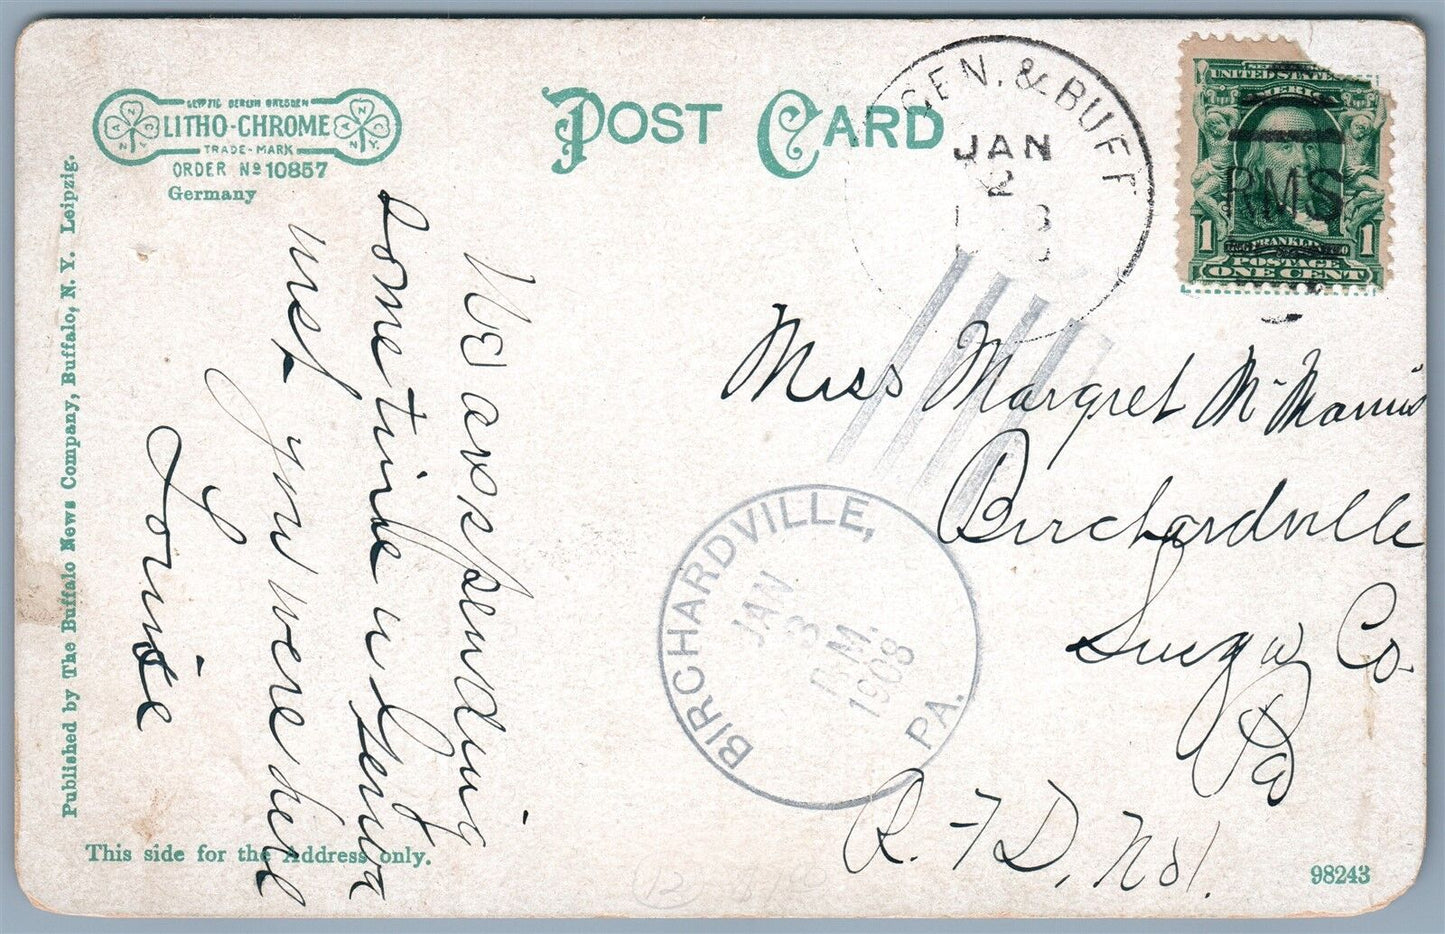 LEIPZIG BERLIN DRESDEN
LITHO-CHROME
TRADE-MARK
ANCO N.Y.
ANCO N.Y.
ORDER No 10857
Germany
POST CARD
GEN. & BUFF
JAN
2
8
UNITED STATES
AMERICA
RMS
1 FRANKLIN 1
POSTAGE
ONE CENT
Miss Margret McManus
Birchardville
Susq'a Co
Pa
R.F.D. No 1.
BIRCHARDVILLE, PA.
JAN
3
P.M.
1908
We are spending
some time in Geneva
wish you were here
Louise
Published by The Buffalo News Company, Buffalo, N. Y. Leipzig.
This side for the Address only.
98243